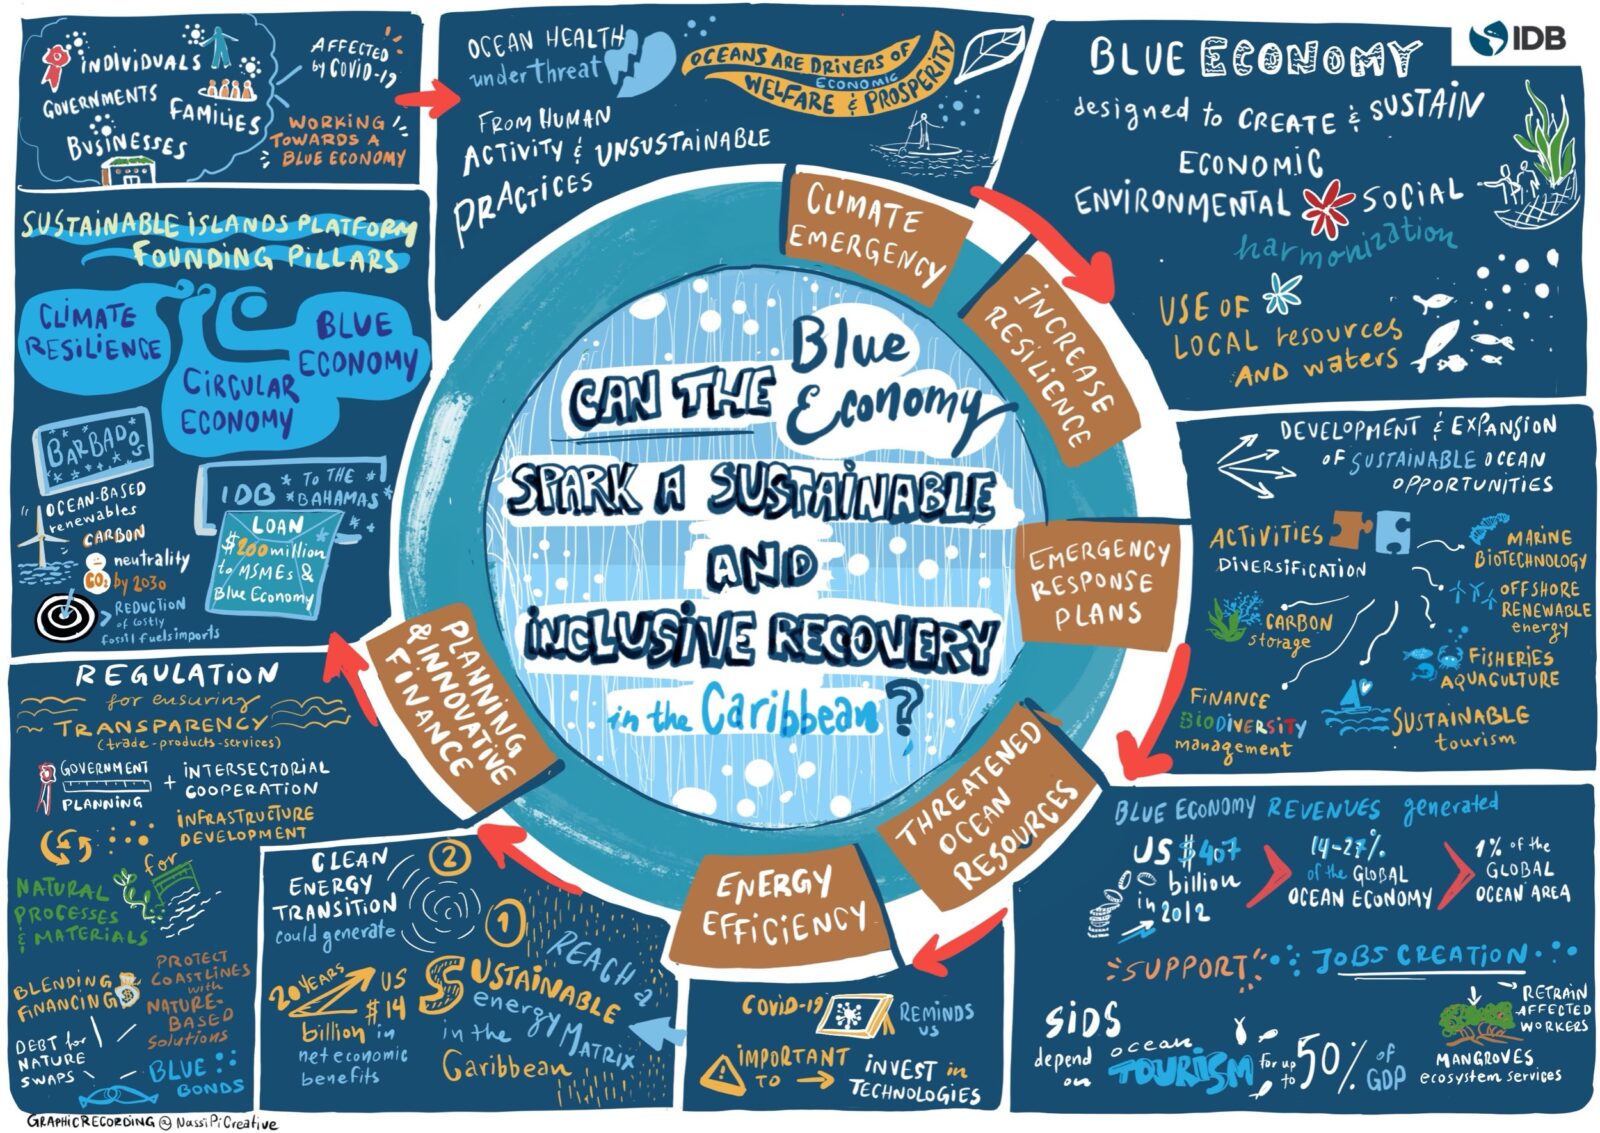 INDIVIDUALS
GOVERNMENTS
FAMILIES
BUSINESSES
AFFECTED
by COVID-19
WORKING
TOWARDS A
BLUE ECONOMY
OCEAN HEALTH
under threat
FROM HUMAN
ACTIVITY & UNSUSTAINABLE
PRACTICES
OCEANS ARE DRIVERS OF
ECONOMIC
WELFARE & PROSPERITY
IDB
BLUE ECONOMY
designed to CREATE & SUSTAIN
ECONOMIC
ENVIRONMENTAL SOCIAL
harmonization
USE OF
LOCAL resources
AND waters
CLIMATE
EMERGENCY
INCREASE
RESILIENCE
EMERGENCY
RESPONSE
PLANS
THREATENED
OCEAN
RESOURCES
ENERGY
EFFICIENCY
PLANNING
& INNOVATIVE
FINANCE
CAN THE Blue
Economy
SPARK A SUSTAINABLE
AND
INCLUSIVE RECOVERY
in the Caribbean?
DEVELOPMENT & EXPANSION
OF SUSTAINABLE OCEAN
OPPORTUNITIES
ACTIVITIES
DIVERSIFICATION
MARINE
BIOTECHNOLOGY
OFFSHORE
RENEWABLE
energy
CARBON
storage
FISHERIES
AQUACULTURE
FINANCE
BIODIVERSITY
management
SUSTAINABLE
tourism
BLUE ECONOMY REVENUES generated
US $407
billion
in 2012
14-27%
of the GLOBAL
OCEAN ECONOMY
1% of the
GLOBAL
OCEAN AREA
"SUPPORT" JOBS CREATION
RETRAIN
AFFECTED
WORKERS
MANGROVES
ecosystem services
SIDS
depend
on
ocean
TOURISM
for up
to
50% of
GDP
COVID-19 REMINDS
US
IMPORTANT
TO
INVEST in
TECHNOLOGIES
1
REACH a
SUSTAINABLE
energy MATRIX
in the
Caribbean
2
CLEAN
ENERGY
TRANSITION
could generate
20 YEARS
US
$14
billion in
net economic
benefits
REGULATION
for ensuring
TRANSPARENCY
(trade-products-services)
GOVERNMENT
PLANNING
+ INTERSECTORIAL
COOPERATION
INFRASTRUCTURE
DEVELOPMENT
for
NATURAL
PROCESSES
& MATERIALS
BLENDING
FINANCING $
PROTECT
COASTLINES
with
NATURE-
BASED
Solutions
DEBT for
NATURE
SWAPS
BLUE
BONDS
SUSTAINABLE ISLANDS PLATFORM
FOUNDING PILLARS
CLIMATE
RESILIENCE
CIRCULAR
ECONOMY
BLUE
ECONOMY
BARBADOS
OCEAN-BASED
renewables
CARBON
neutrality
CO2 by 2030
> REDUCTION
of costly
fossil fuels imports
IDB TO THE
BAHAMAS
LOAN
$200 million
to MSMEs &
Blue Economy
GRAPHIC RECORDING @ NassiPiCreative